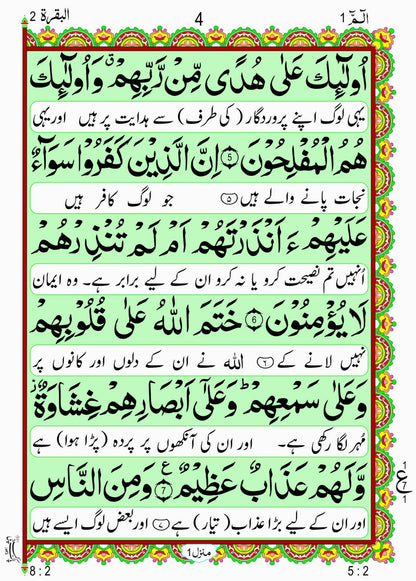 البقرة 2
4
الٓمّٓ 1
اُولٰٓئِكَ عَلٰى هُدًى مِّنْ رَّبِّهِمْ ۗ وَاُولٰٓئِكَ
یہی لوگ اپنے پروردگار (کی طرف) سے ہدایت پر ہیں اور یہی
هُمُ الْمُفْلِحُوْنَ ﴿5﴾ اِنَّ الَّذِيْنَ كَفَرُوْا سَوَآءٌ
نجات پانے والے ہیں ﴿۵﴾ جو لوگ کافر ہیں
عَلَيْهِمْ ءَاَنْذَرْتَهُمْ اَمْ لَمْ تُنْذِرْهُمْ
اُنہیں تم نصیحت کرو یا نہ کرو ان کے لیے برابر ہے۔ وہ ایمان
لَا يُؤْمِنُوْنَ ﴿6﴾ خَتَمَ اللّٰهُ عَلٰى قُلُوْبِهِمْ
نہیں لانے کے ﴿۶﴾ اللہ نے ان کے دلوں اور کانوں پر
وَعَلٰى سَمْعِهِمْ ؕ وَعَلٰٓى اَبْصَارِهِمْ غِشَاوَةٌ ز
مُہر لگا رکھی ہے۔ اور ان کی آنکھوں پر پردہ (پڑا ہوا) ہے
وَّلَهُمْ عَذَابٌ عَظِيْمٌ ﴿7﴾ ع وَمِنَ النَّاسِ
اور ان کے لیے بڑا عذاب (تیار) ہے ﴿۷﴾ اور بعض لوگ ایسے ہیں
منزل 1
8:2
5:2